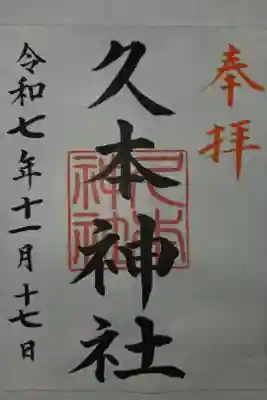 奉拝
久本神社
令和七年十一月十七日